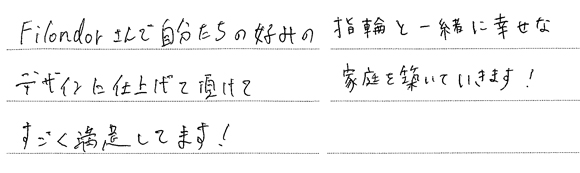 Filondorさんで自分たちの好みの
デザインに仕上げて頂けて
すごく満足してます!
指輪と一緒に幸せな
家庭を築いていきます!